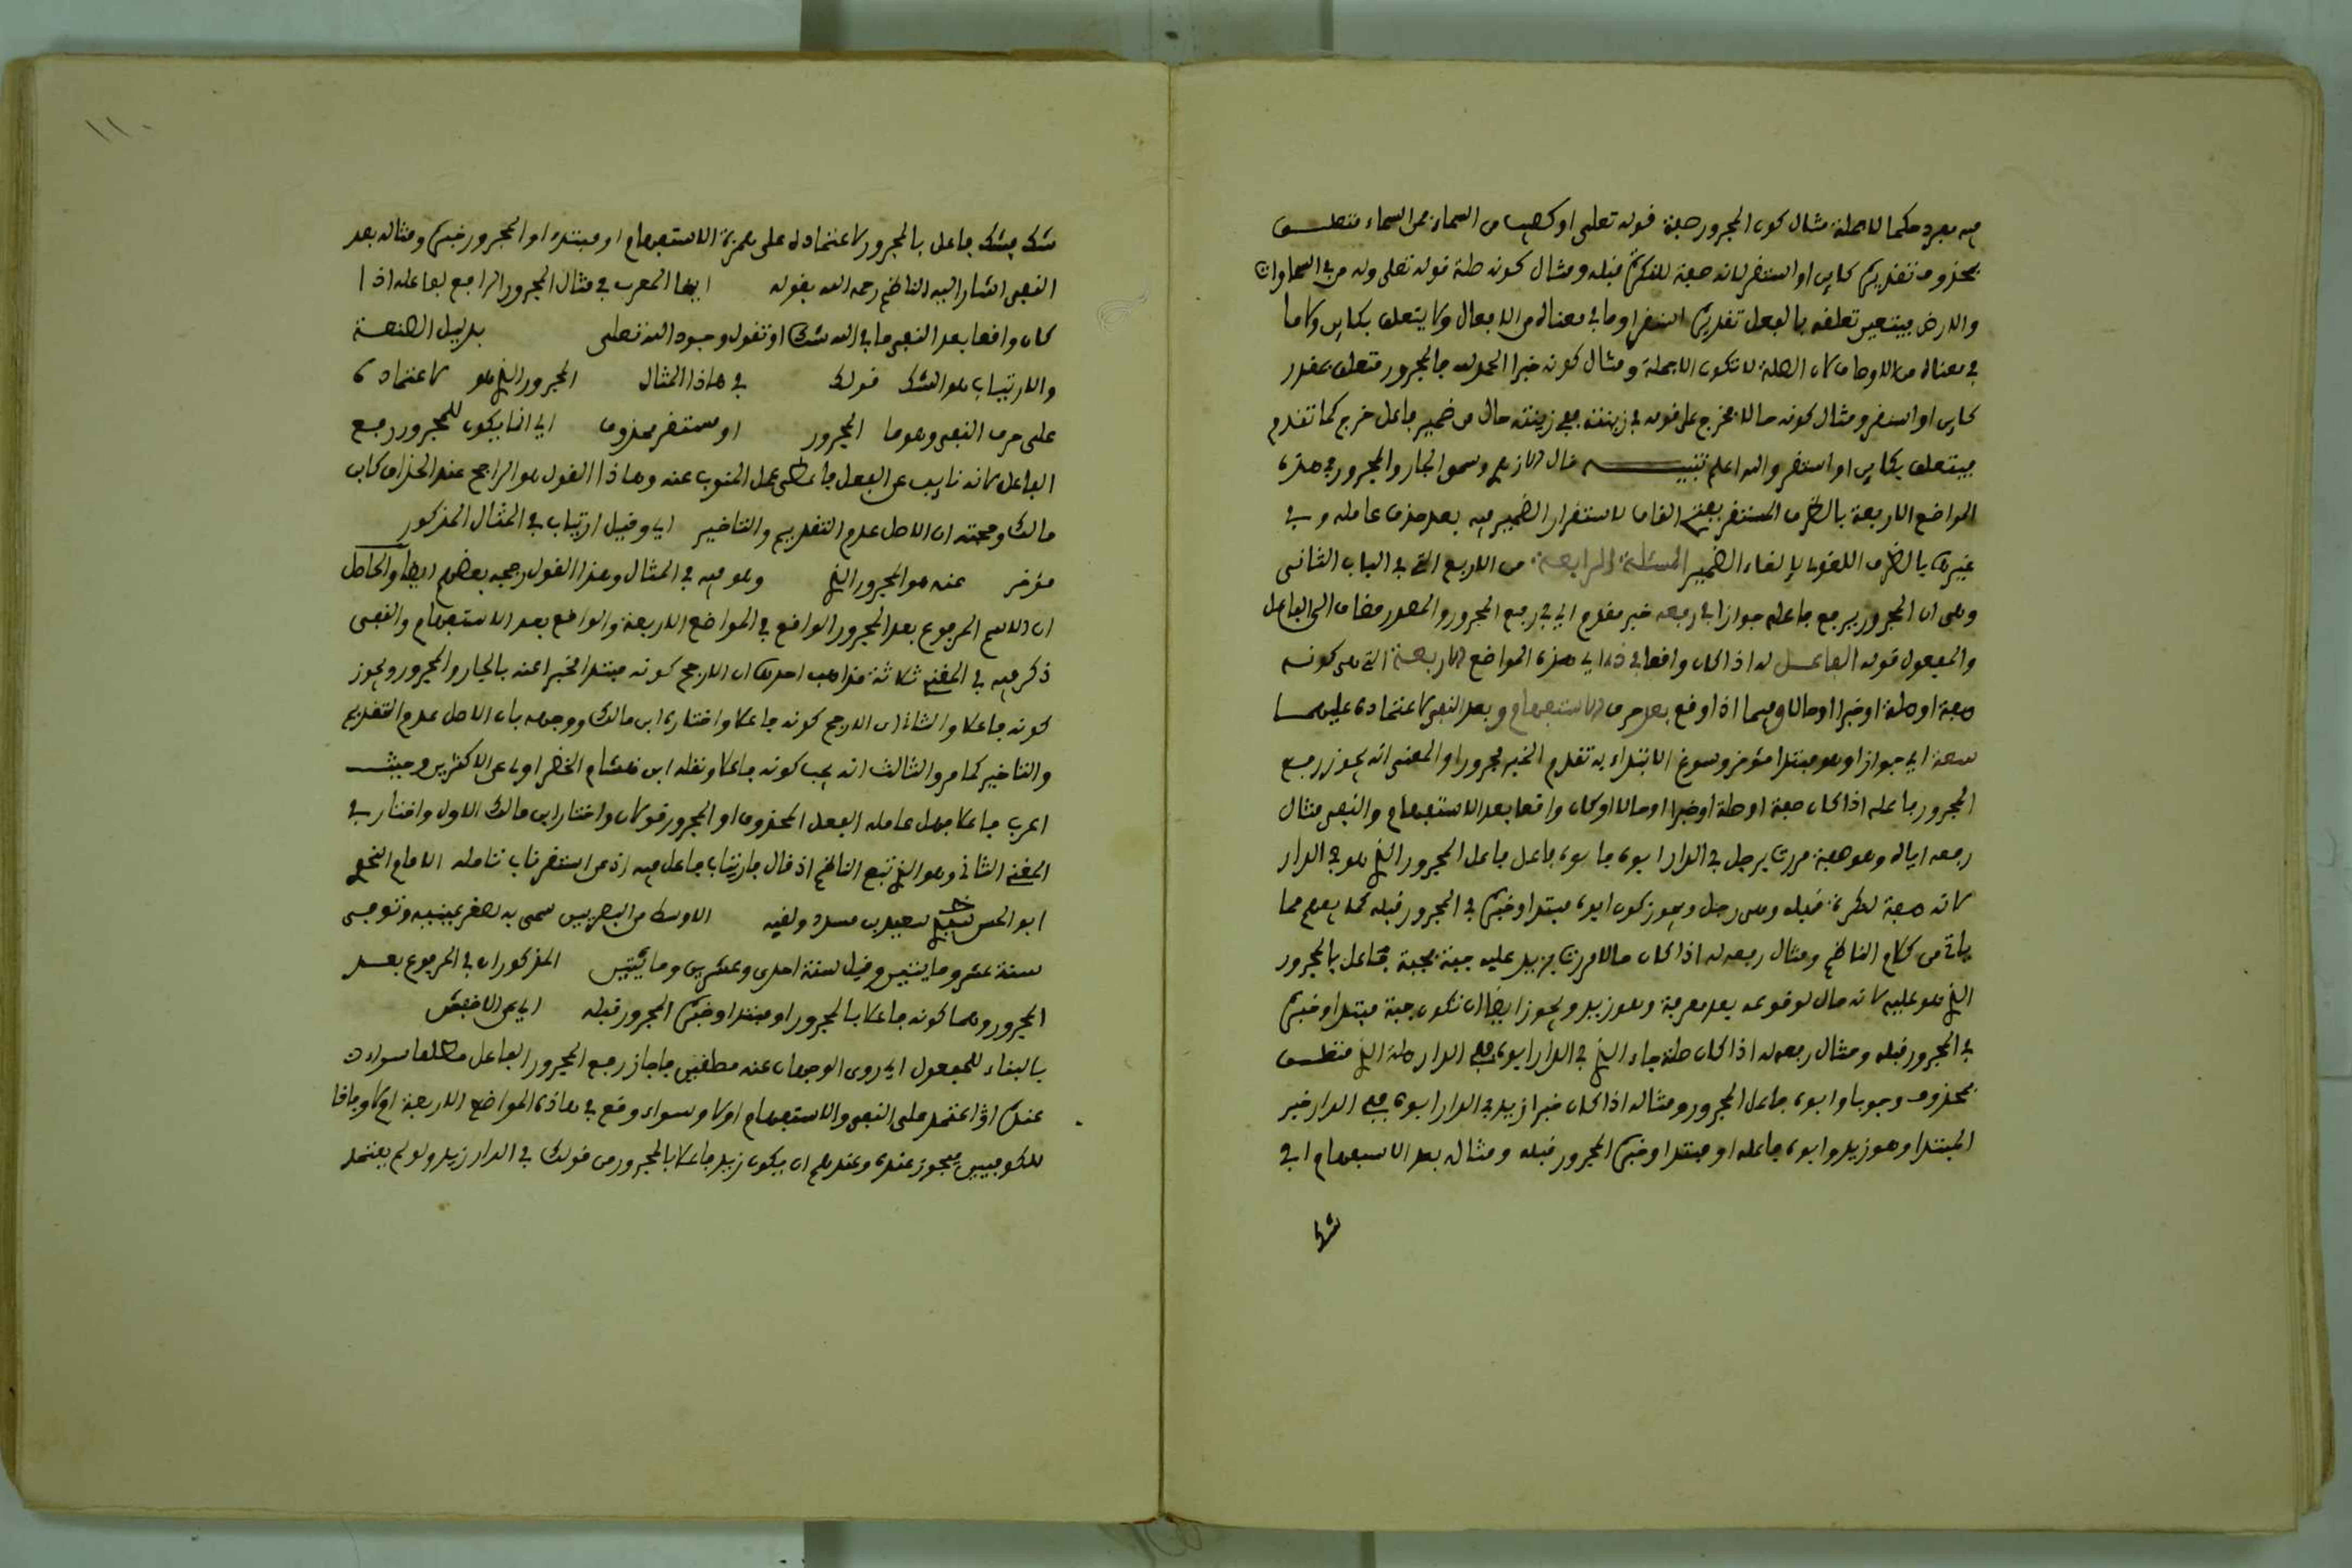 فيه مجرد حكما لا جملة مثال كون المجرور صفة قوله تعلى او كصيب من السماء فمن السماء متعلــق
بمحذوف تقديره كاين او استقر لانه صفة للنكرة قبله ومثال كونه صلة قوله تعلى وله من في السماوات
والارض فيتعين تعلقه بالفعل تقديره استقر او ما في معناه من الافعال ولا يتعلق بكاين ولا ما
في معناه من الاوصاف لان الصلة لا تكون الا جملة ومثال كونه خبرا الحمد لله فالمجرور متعلق بمقدر
كاين او استقر ومثال كونه حالا فخرج على قومه في زينته ففي زينته حال من ضمير فاعل خرج كما تقدم
فيتعلق بكاين او استقر والله اعلم تنبيـــه قال الازهري وسمو الجار والمجرور في هذه
المواضع الاربعة بالظرف المستقر بفتح القاف لاستقرار الضمير فيه بعد حذف عامله وفي
غيرها بالظرف اللغو لإلغاء الضمير المسئلة الرابعة من الاربع التي في الباب الثاني
وهي ان المجرور يرفع فاعله جوازا في رفعه خبر مقدم اي في رفع المجرور والمصدر مضاف الى الفاعل
والمفعول قوله الفاعــل له اذا كان واقعا في ذه اي هذه المواضع الاربعة التي هي كونــه
صفة او صلة او خبرا او حالا وفيما اذا وقع بعد حرف الاستفهام وبعد النفي لاعتماده عليهمــا
سعة اي جوازا وهو مبتدا مؤخر وسوغ الابتداء به تقدم الخبر مجرورا والمعنى انه يجوز رفــع
المجرور فاعله اذا كان صفة او صلة او خبرا او حالا او كان واقعا بعد الاستفهام والنفي مثال
رفعه اياه وهو صفة مررت برجل في الدار ابوه فابوه فاعل فاعل المجرور الذي هو في الدار
لانه صفة لنكرة قبله وهي رجل ويجوز كون ابوه مبتدا وخبره في المجرور قبله كما يعلم مما
ياتي من كلام الناظم ومثال رفعه له اذا كان حالا مررت بزيد عليه جبة فجبة فاعل بالمجرور
الذي هو عليه لانه حال لوقوعه بعد معرفة وهو زيد ويجوز ايضا ان تكون جبة مبتدا وخبره
في المجرور قبله ومثال رفعه له اذا كان صلة جاء الذي في الدار ابوه ففي الدار صلة الذي متعلــق
بمحذوف وجوبا وابوه فاعل المجرور ومثاله اذا كان خبرا زيد في الدار ابوه ففي الدار خبر
المبتدا وهو زيد وابوه فاعله او مبتدا وخبره المجرور قبله ومثال بعد الاستفهام افي
شك
١١٠
شك فشك فاعل بالمجرور لاعتماده على همزة الاستفهام او مبتدا والمجرور خبره ومثاله بعد
النفي اشار اليه الناظم رحمه الله بقوله ايها المعرب في مثال المجرور الرافع لفاعله اذا
كان واقعا بعد النفي ما في الله شك او تقول وجود الله تعلى بدليل الصنعة
والارتياب هو الشك قولك في هاذا المثال المجرور الذي هو لاعتماده
على حرف النفي وهو ما المجرور او ستقر محذوف اي انما يكون للمجرور رفع
الفاعل لانه نايب عن الفعل فاعطي عمل المنوب عنه وهاذا القول هو الراجح عند الحذاق كابن
مالك وحجته ان الاصل عدم التقديم والتاخير اي وقيل ارتياب في المثال المذكور
مؤخر عنه هو المجرور الذي وهو فيه في المثال وهذا القول رجحه بعضهم ايضا والحاصل
ان الاسم المرفوع بعد المجرور الواقع في المواضع الاربعة والواقع بعد الاستفهام والنفي
ذكر فيه في المغني ثلاثة مذاهب احدها ان الارجح كونه مبتدا مخبرا عنه بالجار والمجرور ويجوز
كونه فاعلا والثاني ان الارجح كونه فاعلا واختاره ابن مالك ووجهه بان الاصل عدم التقديم
والتاخير كما مر والثالث انه يجب كونه فاعلا ونقله ابن هشام الخضراوي عن الاكثرين وحيث
اعرب فاعلا فهل عامله الفعل المحذوف او المجرور قولان واختار ابن مالك الاول واختار في
المغني الثاني وهو الذي تبع الناظم اذ قال فارتياب فاعل فيه اذ عن استقر ناب تامله الامام النحوي
ابو الحسن سعيد بن مسعدة ولقبه الاوسط من البصريين سمي به لصغر عينيه وتوفي
سنة عشر وماينتين وقيل سنة احدى وعشرين ومائتين المذكوران في المرفوع بعــد
المجرور وهما كونه فاعلا بالمجرور او مبتدا وخبره المجرور قبله اي عن الاخفش
بالبناء للمفعول اي روى الوجهان عنه مطلقين فاجاز رفع المجرور الفاعل مطلقا سواء
عنده اعتمد على النفي والاستفهام او لا وسواء وقع في هاذه المواضع الاربعة او لا وفاقا
للكوفيين فيجوز عنده وعندهم ان يكون زيد فاعلا بالمجرور من قولك في الدار زيد ولو لم يعتمد